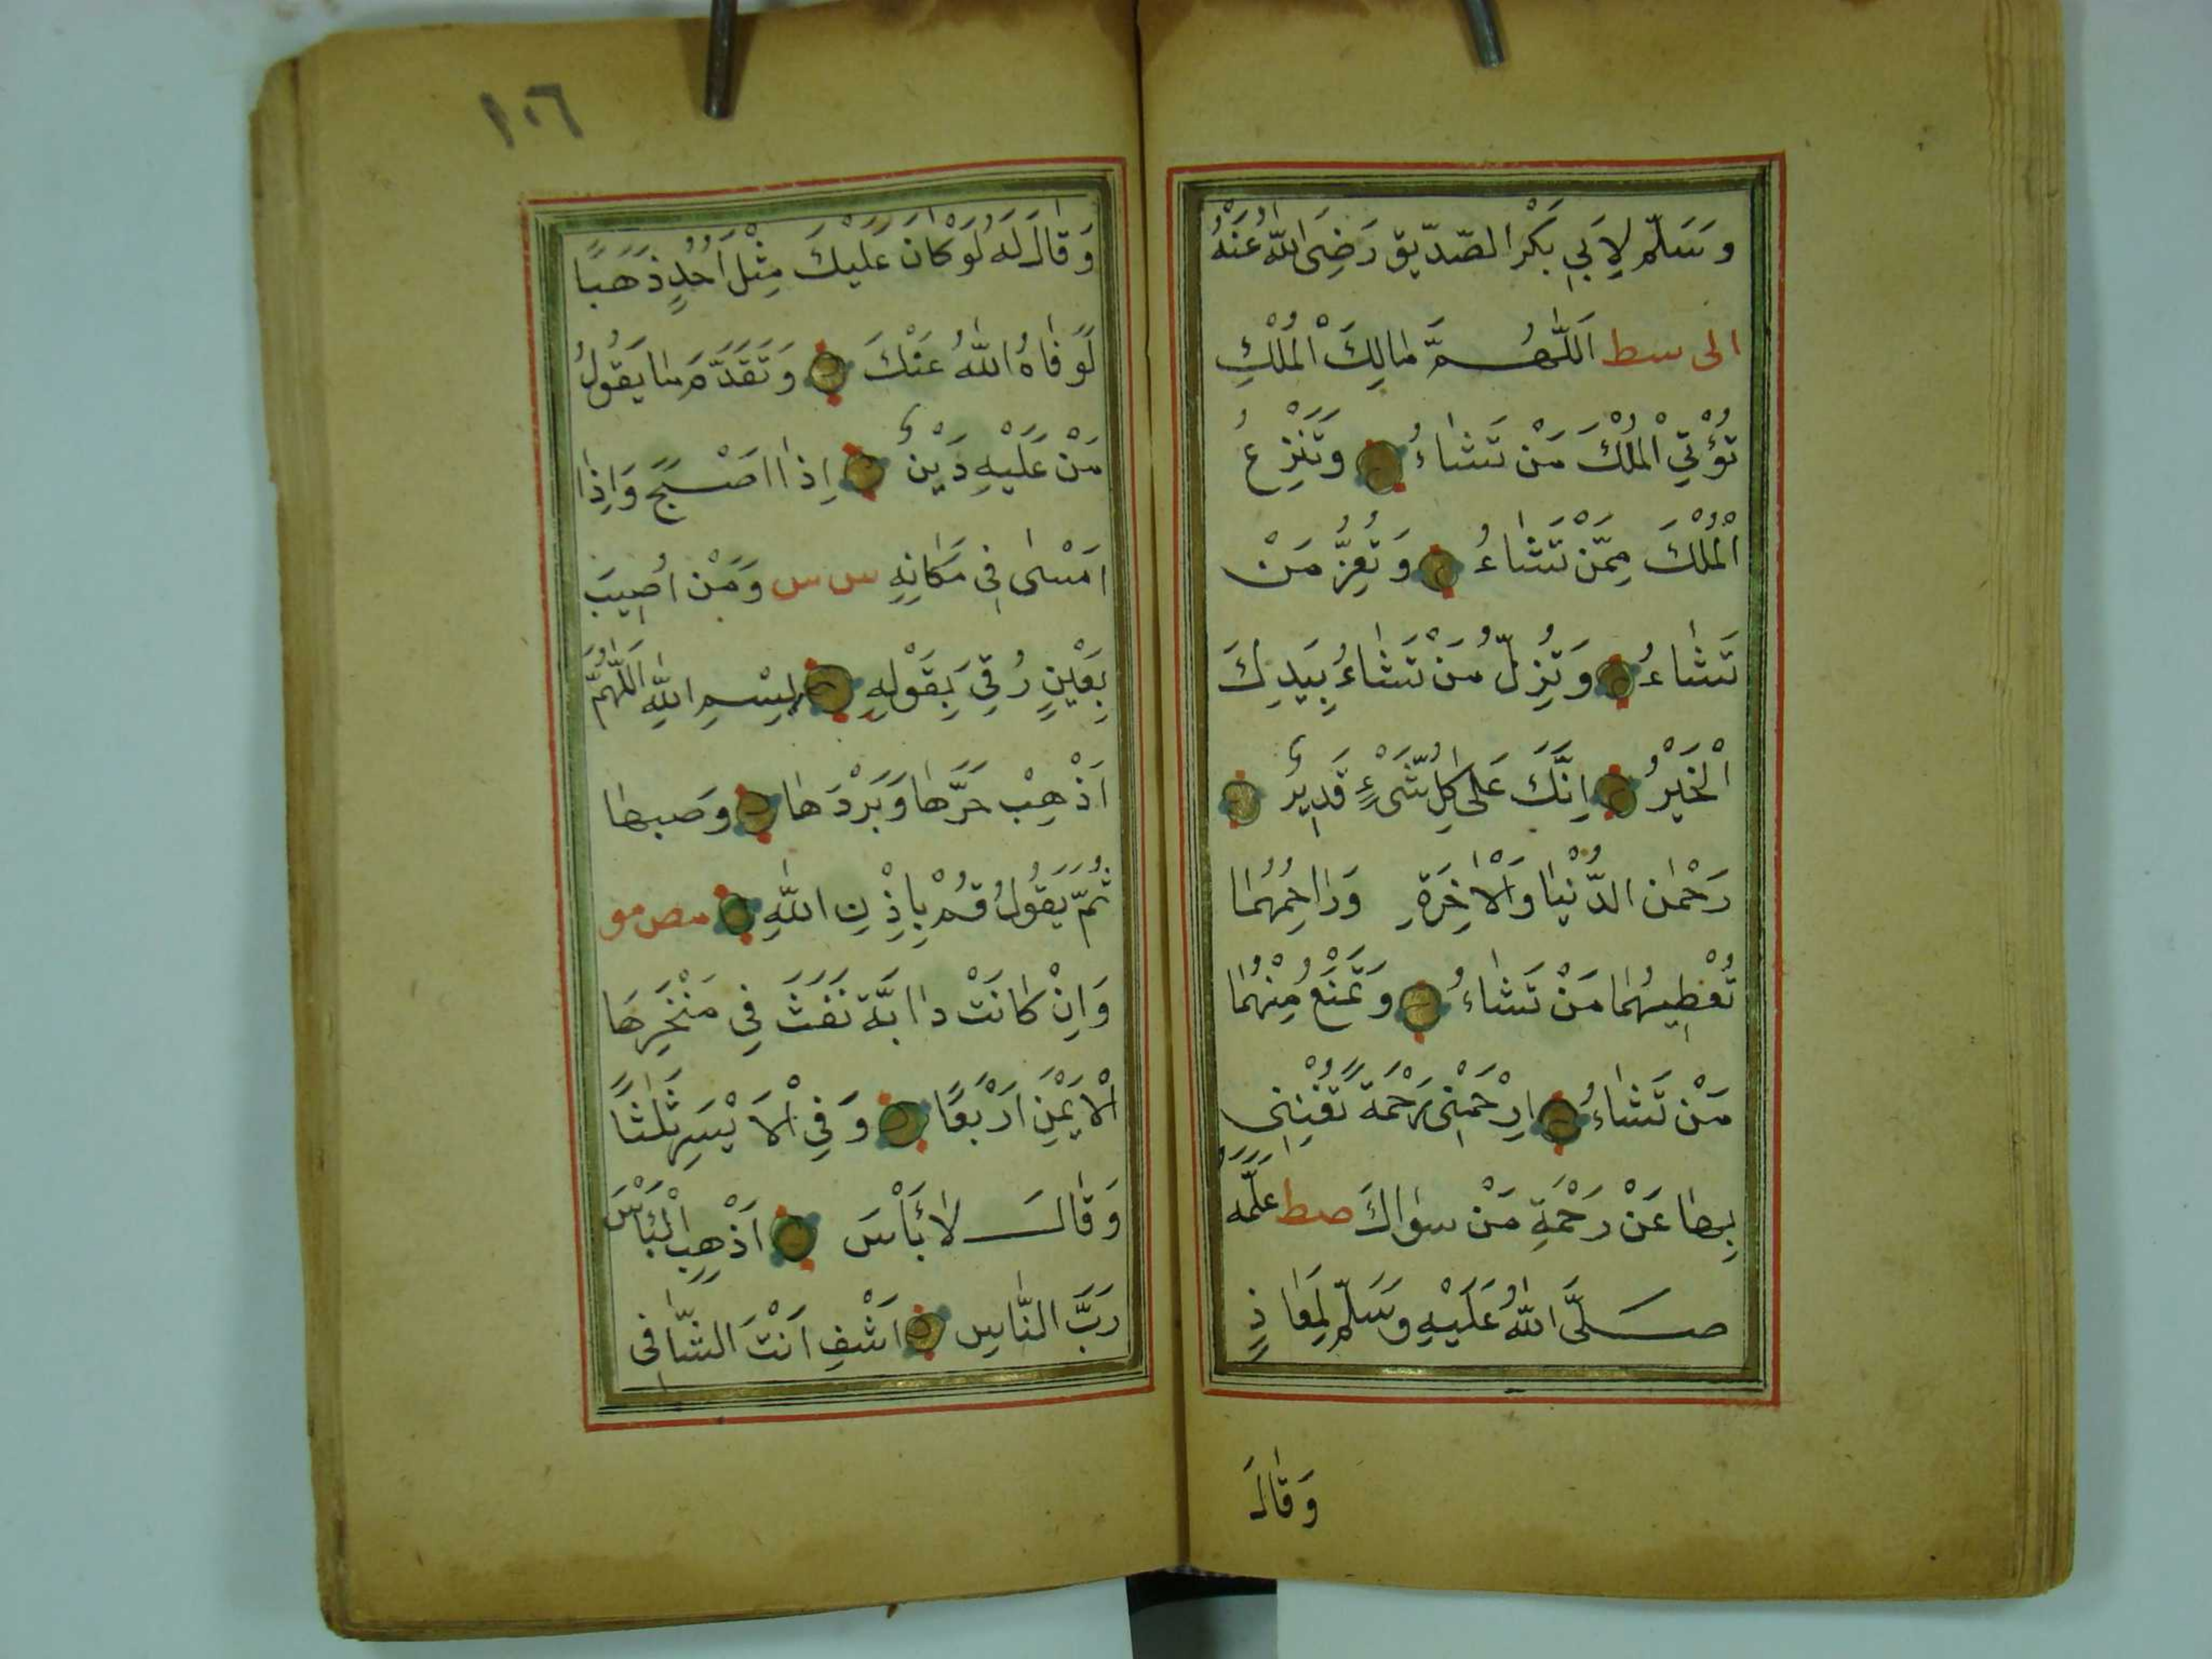 وَسَلَّم لِاَبِي بَكْر الصّدّيق رَضِىَ اللّٰهُ عَنْهُ
الى سط اَللّٰهُمَّ مَالِكَ الْمُلْكِ
تُؤْتِي الْمُلْكَ مَنْ تَشَاءُ وَتَنْزِعُ
الْمُلْكَ مِمَّنْ تَشَاءُ وَتُعِزُّ مَنْ
تَشَاءُ وَتُزِلُّ مَنْ تَشَاءُ بِيَدِكَ
الْخَيْرُ اِنَّكَ عَلٰى كُلِّ شَىْءٍ قَدِيرٌ
رَحْمٰنَ الدُّنْيَا وَالْاٰخِرَةِ وَرَاحِمُهُمَا
تُعْطِيهُمَا مَنْ تَشَاءُ وَتَمْنَعُ مِنْهُمَا
مَنْ تَشَاءُ اِرْحَمْنِى رَحْمَةً تُغْنِينِى
بِهَا عَنْ رَحْمَةِ مَنْ سِوَاكَ صط عَلَّمَهُ
صَلَّى اللّٰهُ عَلَيْهِ وَسَلَّمَ لِمَعَاذٍ
وَقَالَ
١٠٦
وَقَالَ لَهُ لَوْ كَانَ عَلَيْكَ مِثْلَ اُحُدٍ ذَهَبًا
لَوَفَاهُ اللّٰهُ عَنْكَ وَتَقَدَّمَ مَا يَقُولُ
مَنْ عَلَيْهِ دَيْنٌ اِذَا اصْبَحَ وَاِذَا
امْسٰى فِى مَكَانِهِ س س وَمَنْ اُصِيبَ
بِعَيْنٍ رُقِيَ بِقَوْلِهِ بِسْمِ اللّٰهِ اَللّٰهُمَّ
اَذْهِبْ حَرَّهَا وَبَرْدَهَا وَصبهَا
ثُمَّ يَقُولُ قُمْ بِاِذْنِ اللّٰهِ مص مو
وَاِنْ كَانَتْ دَابَّة نَفَثَ فِي مَنْخِرِهَا
الْاَيْمَنِ اَرْبَعًا وَفِي الْاَيْسَرِ ثَلٰثًا
وَقَالَ لَا بَأْسَ اَذْهِبِ الْبَأْسَ
رَبَّ النَّاسِ اشْفِ اَنْتَ الشَّافِى